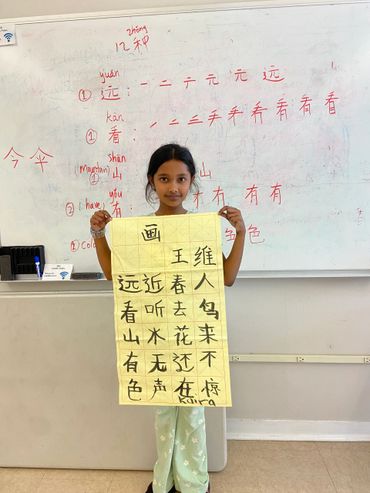 zhǒng
种
yuán
① 远 : 一 二 元 元 远
kàn
① 看 : 一 二 三 手 看 看 看 看
今 伞
shān
(mountain)
① 山 山
yǒu
② (have) 有 有 有 有
① Color 色
画
王维
远看山有色
近听水无声
春去花还在
人来鸟不惊